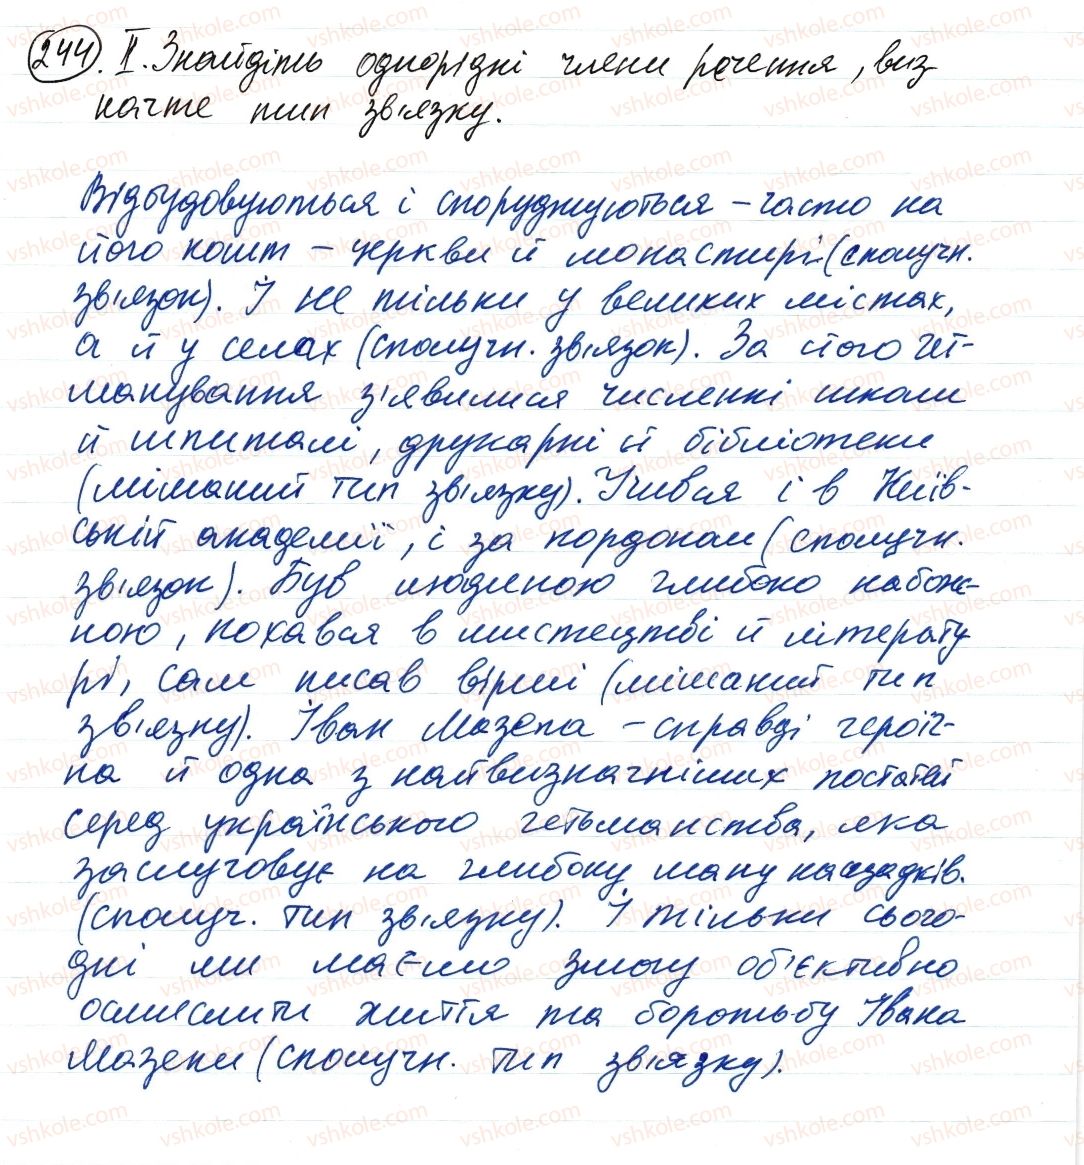 244. ІІ. Знайдіть однорідні члени речення, виз
начте тип зв'язку.
Відбудовуються і споруджуються – часто на
його кошт – церкви й монастирі (сполучн.
зв'язок). І не тільки у великих містах,
а й у селах (сполучн. зв'язок). За його гет-
манування з'явилися численні школи
й шпиталі, друкарні й бібліотеки
(мішаний тип зв'язку). Учився і в Київ-
ській академії, і за кордоном (сполучн.
зв'язок). Був людиною глибоко набож-
ною, кохався в мистецтві й літерату
рі, сам писав вірші (мішаний тип
зв'язку). Іван Мазепа – справді героїч-
на й одна з найвизначніших постатей
серед українського гетьманства, яка
заслуговує на глибоку шану нащадків.
(сполуч. тип зв'язку). І тільки сього-
дні ми маємо змогу об'єктивно
осмислити життя та боротьбу Івана
Мазепи (сполучн. тип зв'язку).